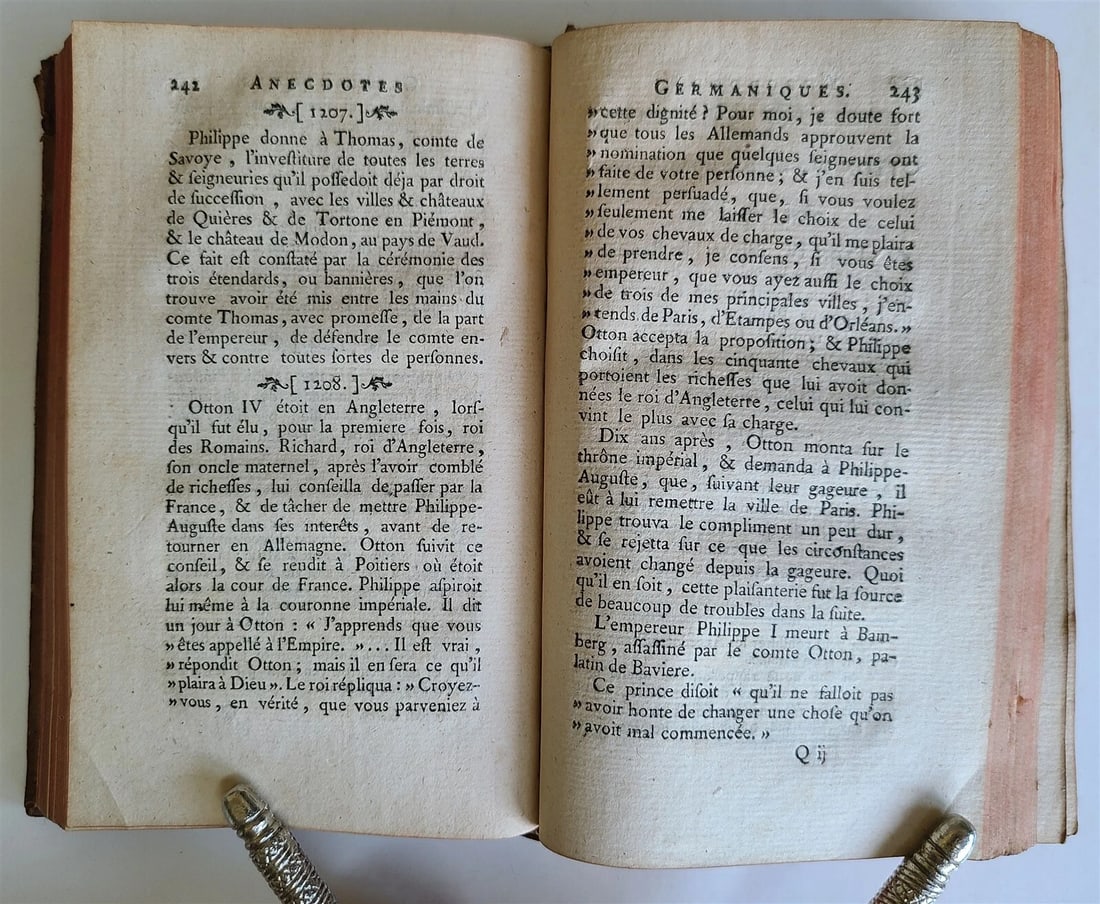 242 ANECDOTES
[ 1207. ]
Philippe donne à Thomas, comte de
Savoye, l'inveſtiture de toutes les terres
& ſeigneuries qu'il poſſedoit déja par droit
de ſucceſſion, avec les villes & châteaux
de Quières & de Tortone en Piémont,
& le château de Modon, au pays de Vaud.
Ce fait eſt conſtaté par la cérémonie des
trois étendards, ou bannières, que l'on
trouve avoir été mis entre les mains du
comte Thomas, avec promeſſe, de la part
de l'empereur, de défendre le comte en-
vers & contre toutes ſortes de perſonnes.
[ 1208. ]
Otton IV étoit en Angleterre, lorſ-
qu'il fut élu, pour la premiere fois, roi
des Romains. Richard, roi d'Angleterre,
ſon oncle maternel, après l'avoir comblé
de richeſſes, lui conſeilla de paſſer par la
France, & de tâcher de mettre Philippe-
Auguſte dans ſes interêts, avant de re-
tourner en Allemagne. Otton ſuivit ce
conſeil, & ſe rendit à Poitiers où étoit
alors la cour de France. Philippe aſpiroit
lui même à la couronne impériale. Il dit
un jour à Otton : « J'apprends que vous
» êtes appellé à l'Empire. »... Il eſt vrai,
» répondit Otton ; mais il en ſera ce qu'il
» plaira à Dieu ». Le roi répliqua : » Croyez-
» vous, en vérité, que vous parveniez à
GERMANIQUES. 243
» cette dignité ? Pour moi, je doute fort
» que tous les Allemands approuvent la
» nomination que quelques ſeigneurs ont
» faite de votre perſonne ; & j'en ſuis tel-
» lement perſuadé, que, ſi vous voulez
» ſeulement me laiſſer le choix de celui
» de vos chevaux de charge, qu'il me plaira
» de prendre, je conſens, ſi vous êtes
» empereur, que vous ayez auſſi le choix
» de trois de mes principales villes, j'en-
» tends de Paris, d'Etampes ou d'Orléans. »
Otton accepta la propoſition ; & Philippe
choiſit, dans les cinquante chevaux qui
portoient les richeſſes que lui avoit don-
nées le roi d'Angleterre, celui qui lui con-
vint le plus avec ſa charge.
Dix ans après, Otton monta ſur le
thrône impérial, & demanda à Philippe-
Auguſte, que, ſuivant leur gageure, il
eût à lui remettre la ville de Paris. Phi-
lippe trouva le compliment un peu dur,
& ſe rejetta ſur ce que les circonſtances
avoient changé depuis la gageure. Quoi
qu'il en ſoit, cette plaiſanterie fut la ſource
de beaucoup de troubles dans la ſuite.
L'empereur Philippe I meurt à Bam-
berg, aſſaſſiné par le comte Otton, pa-
latin de Baviere.
Ce prince diſoit « qu'il ne falloit pas
» avoir honte de changer une choſe qu'on
» avoit mal commencée. »
Q ij